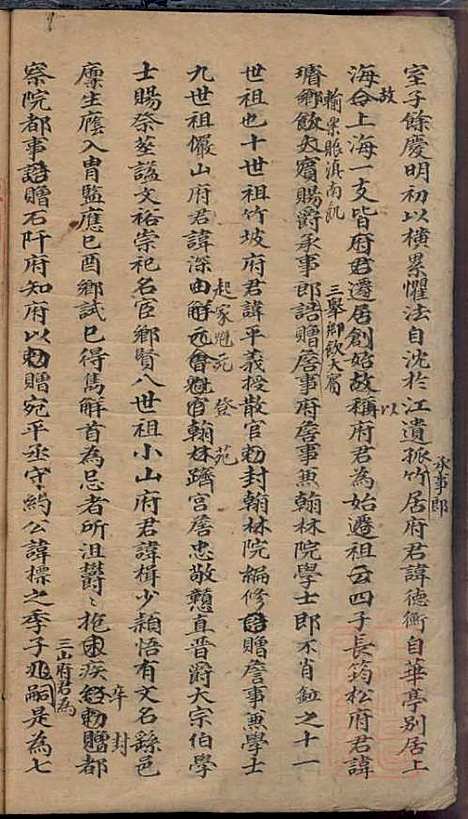 室子餘慶明初以橫累懼法自沈於江遺孤竹居府君諱德衡自華亭別居上
承事郎
海故今上海一支皆府君遷居創始故稱府君為始遷祖云四子長筠松府君諱
以
璿鄉飲大賓賜爵承事郎誥贈詹事府詹事兼翰林院學士郎不肖鈳之十一
輸粟賑滇南飢
三舉鄉飲大賓
世祖也十世祖竹坡府君諱平義授散官勅封翰林院編修誥贈詹事兼學士
九世祖儼山府君諱深由解元會魁官翰林躋宮詹忠敬戇直晉爵大宗伯學
起家魁苑登苑
士賜祭葬諡文裕崇祀名宦鄉賢八世祖小山府君諱楫少穎悟有文名繇邑
廩生廕入胄監應己酉鄉試已得雋解首為忌者所沮鬱鬱抱疾勅贈都
卒封
察院都事誥贈石阡府知府以勅贈宛平丞守約公諱標之季子兆嗣是為七
三山府君為